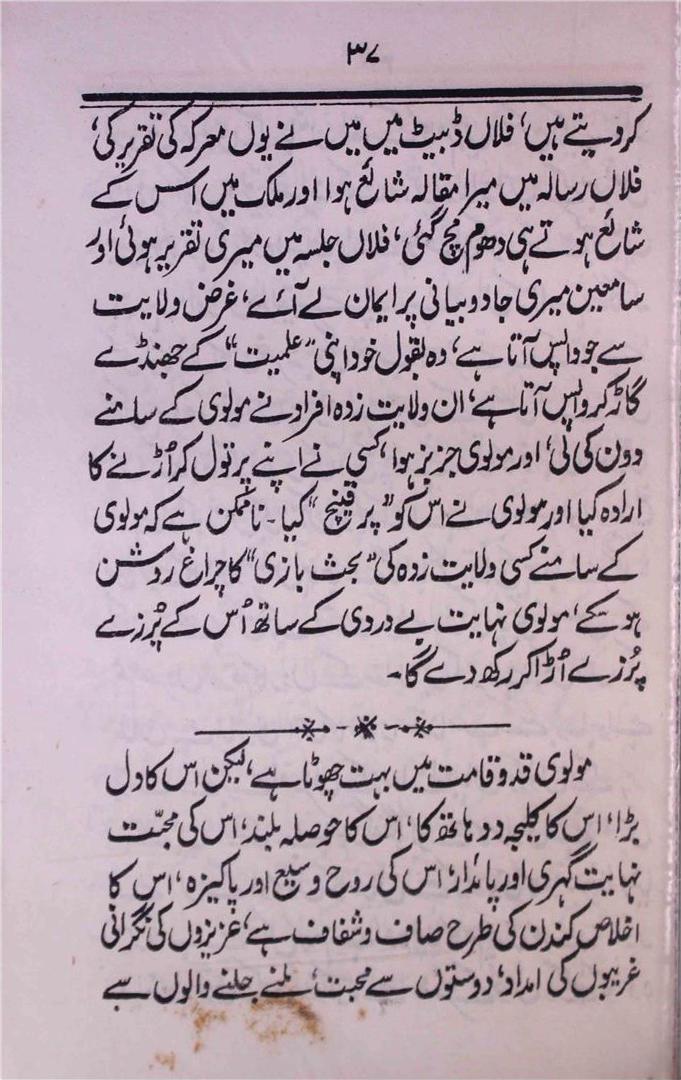 ۳۷
کر دیتے ہیں، فلاں ڈبیٹ میں میں نے یوں معرکہ کی تقریر کی،
فلاں رسالہ میں میرا مقالہ شائع ہوا اور ملک میں اس کے
شائع ہوتے ہی دھوم مچ گئی، فلاں جلسہ میں میری تقریر ہوئی اور
سامعین میری جادو بیانی پر ایمان لے آئے، غرض ولایت
سے جو واپس آتا ہے، وہ بقول خود اپنی "علمیت" کے جھنڈے
گاڑ کر واپس آتا ہے، ان ولایت زدہ افراد نے مولوی کے سامنے
دون کی لی، اور مولوی جزبز ہوا، کسی نے اپنے پر تول کر اُڑنے کا
ارادہ کیا اور مولوی نے اس کو "پر قینچ" کیا۔ ناممکن ہے کہ مولوی
کے سامنے کسی ولایت زدہ کی "بحث بازی" کا چراغ روشن
ہو سکے، مولوی نہایت بے دردی کے ساتھ اُس کے پُرزے
پُرزے اُڑا کر رکھ دے گا۔
مولوی قد و قامت میں بہت چھوٹا ہے، لیکن اس کا دل
بڑا، اس کا کلیجہ دو ہاتھ کا، اس کا حوصلہ بلند، اس کی محبّت
نہایت گہری اور پائدار، اس کی روح وسیع اور پاکیزہ، اس کا
اخلاص کندن کی طرح صاف و شفاف ہے، عزیزوں کی نگرانی
غریبوں کی امداد، دوستوں سے محبت، ملنے جلنے والوں سے